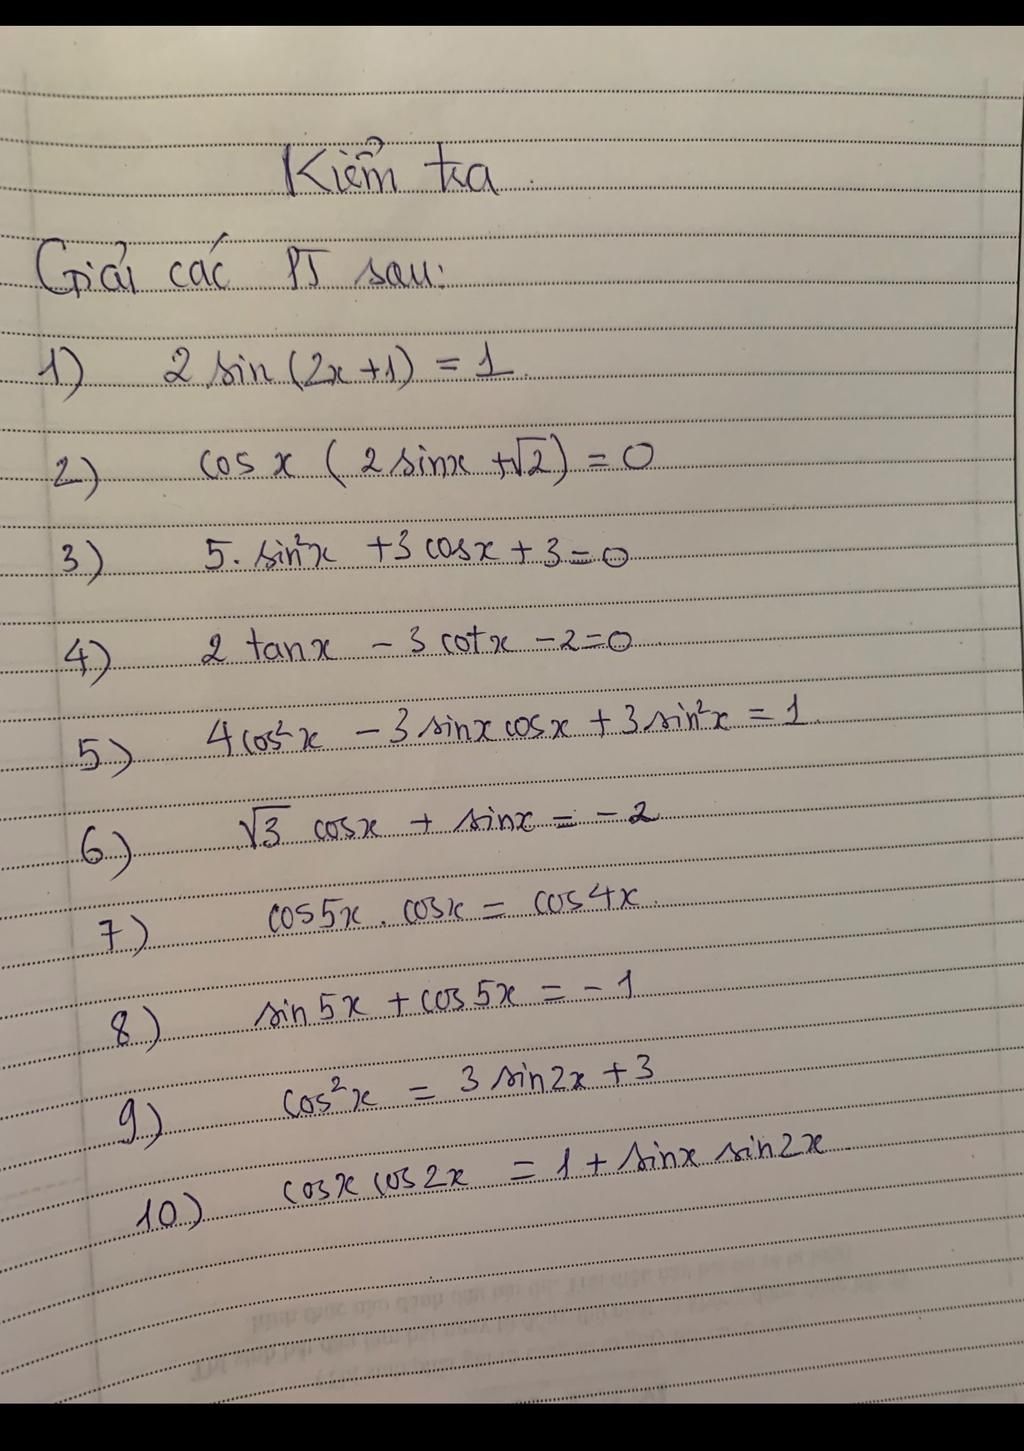 Kiểm tra
Giải các PT sau:
1) 2 sin (2x + 1) = 1
2) cos x ( 2 sinx + √2 ) = 0
3) 5. sin²x + 3 cosx + 3 = 0
4) 2 tanx - 3 cotx - 2 = 0
5) 4 cos²x - 3 sinx cosx + 3 sin²x = 1
6) √3 cosx + sinx = - 2
7) cos5x . cosx = cos4x
8) sin 5x + cos 5x = - 1
9) cos²x = 3 sin2x + 3
10) cosx cos2x = 1 + sinx sin2x